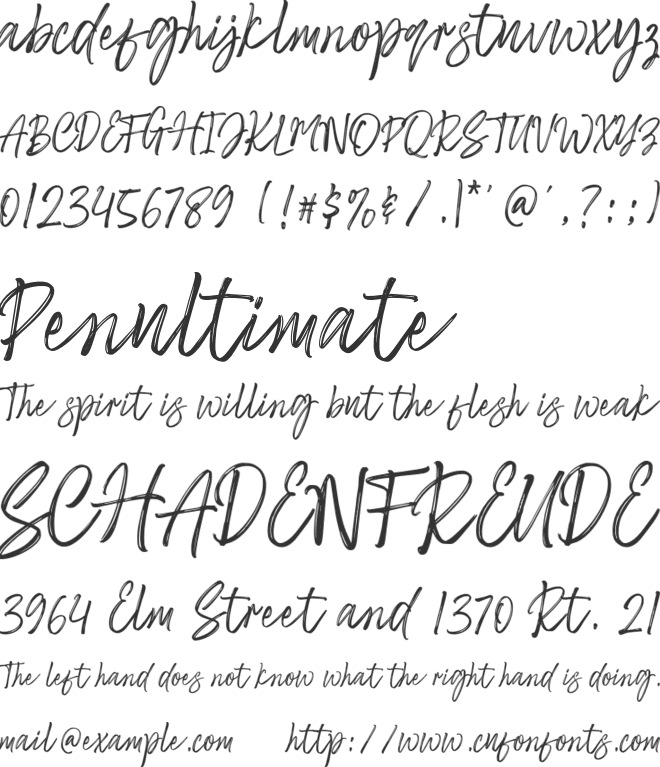 abcdefghijklmnopqrstuvwxyz
ABCDEFGHIJKLMNOPQRSTUVWXYZ
0123456789 (!#$%&/.|*'@',?:;)
Penultimate
The spirit is willing but the flesh is weak
SCHADENFREUDE
3964 Elm Street and 1370 Rt. 21
The left hand does not know what the right hand is doing.
mail@example.com http://www.cnfonfonts.com